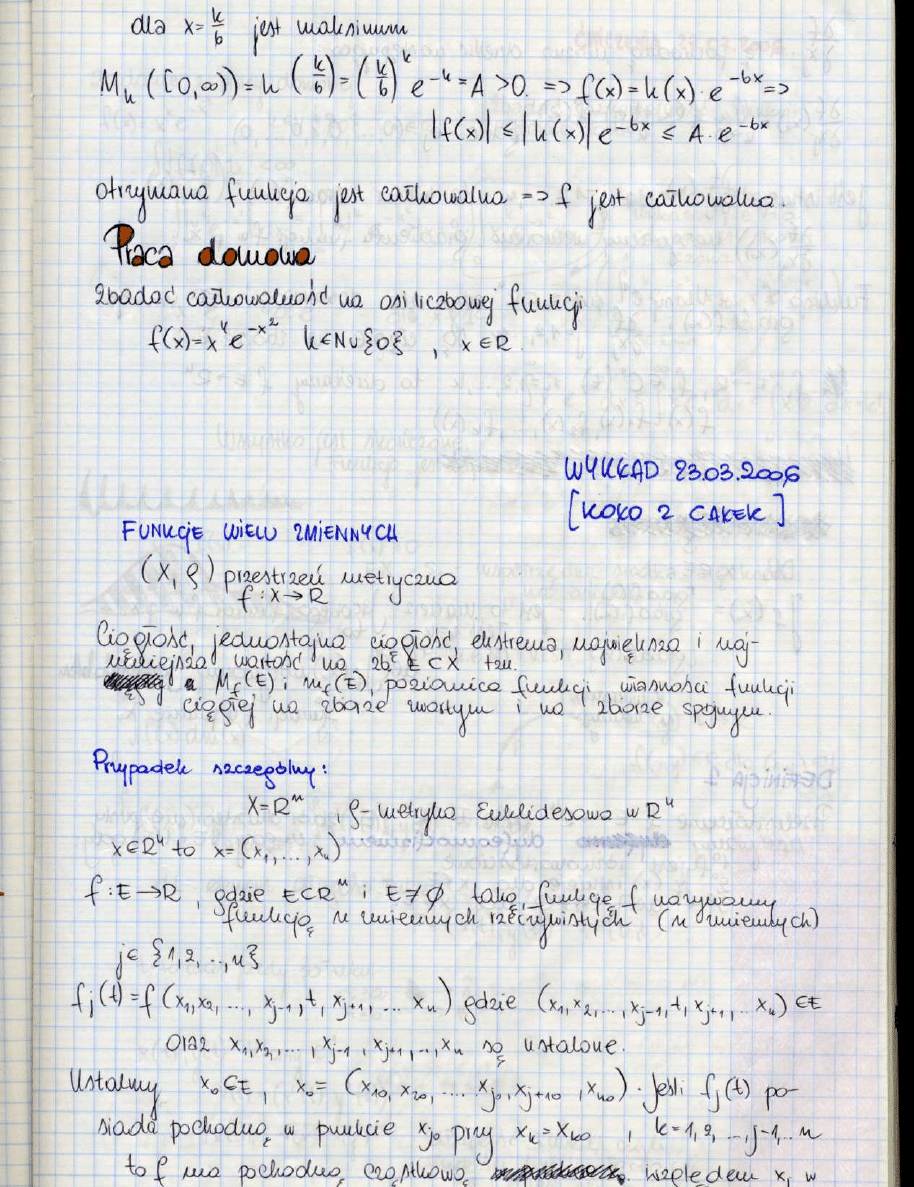 dla x = k/6 jest maksimum
M_h ([0,∞)) = h (k/6) = (k/6)^k e^-k = A > 0. => f(x) = h(x) · e^-6x =>
|f(x)| ≤ |h(x)| e^-6x ≤ A · e^-6x
otrzymana funkcja jest całkowalna => f jest całkowalna.
Praca domowa
Zbadać całkowalność na osi liczbowej funkcji
f(x) = x^k e^-x² k∈N∪{0} , x∈R
WYKŁAD 23.03.2006
[KOŁO Z CAŁEK]
FUNKCJE WIELU ZMIENNYCH
(X, ρ) przestrzeń metryczna
f: X → R
Ciągłość, jednostajna ciągłość, ekstrema, największa i naj-
mniejsza wartość na zb. E⊂X tzn.
M_f(E) i m_f(E), poziomica funkcji, własności funkcji
ciągłej na zbiorze zwartym i na zbiorze spójnym.
Przypadek szczególny:
X = R^n , ρ - metryka Euklidesowa w R^n
x∈R^n to x = (x₁, ..., xₙ)
f: E → R , gdzie E⊂R^n i E ≠ ∅ taką funkcję f nazywamy
funkcją n zmiennych rzeczywistych (n zmiennych)
j∈ {1,2, ..,n}
f_j(t) = f (x₁,x₂, ..., x_j-1, t, x_j+1, ... xₙ) gdzie (x₁,x₂, ..., x_j-1, t, x_j+1, .. xₙ) ∈E
oraz x₁,x₂, ..., x_j-1, x_j+1, .., xₙ są ustalone.
Ustalmy x₀∈E, x₀ = (x₁₀, x₂₀, .... x_j0, x_j+10, x_n0). Jeśli f_j(t) po-
siada pochodną w punkcie x_j0 przy x_k = x_k0 , k=1,2, ..,j-1,.. n
to f ma pochodną cząstkową względem x_j w